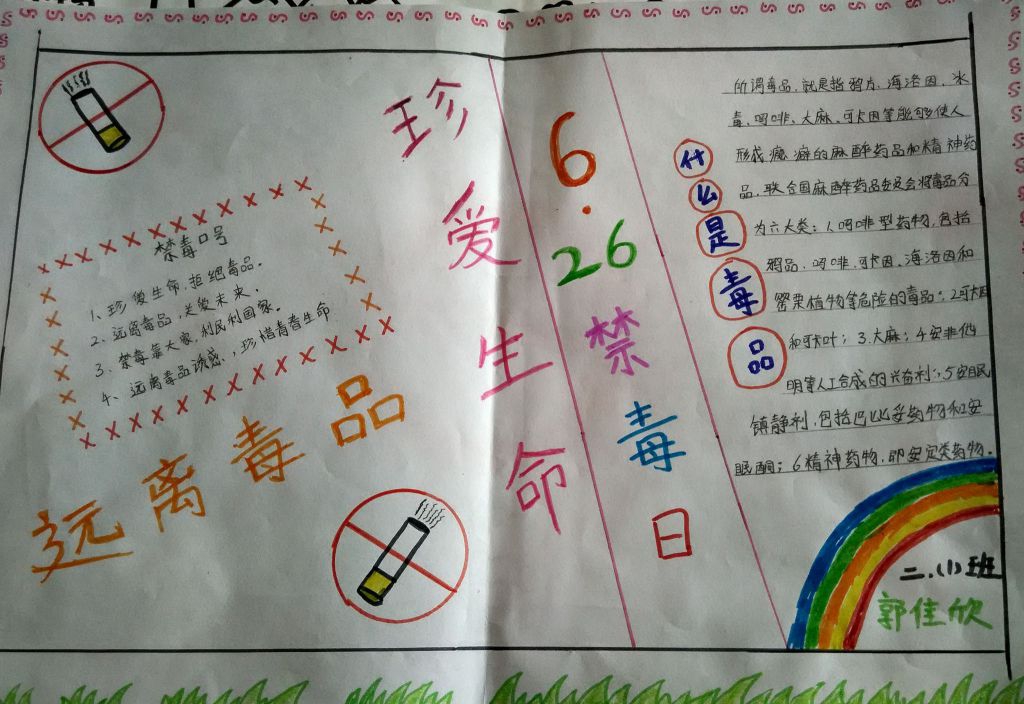 禁毒口号
1、珍爱生命,拒绝毒品。
2、远离毒品,关爱未来。
3、禁毒靠大家,利民利国家。
4、远离毒品诱惑、,珍惜青春生命
远离毒品
珍爱生命
6.26禁毒日
什么是毒品
所谓毒品,就是指鸦片、海洛因、冰
毒、吗啡、大麻、可卡因等能够使人
形成瘾癖的麻醉药品和精神药
品,联合国麻醉药品委员会将毒品分
为六大类:1.吗啡型药物,包括
鸦品、吗啡、可卡因、海洛因和
罂粟植物等危险的毒品;2可卡因
和可卡叶;3.大麻;4安非他
明等人工合成的兴奋利;5安眠
镇静利,包括巴比妥药物和安
眠酮;6精神药物,即安定类药物.
二.(1)班
郭佳欣